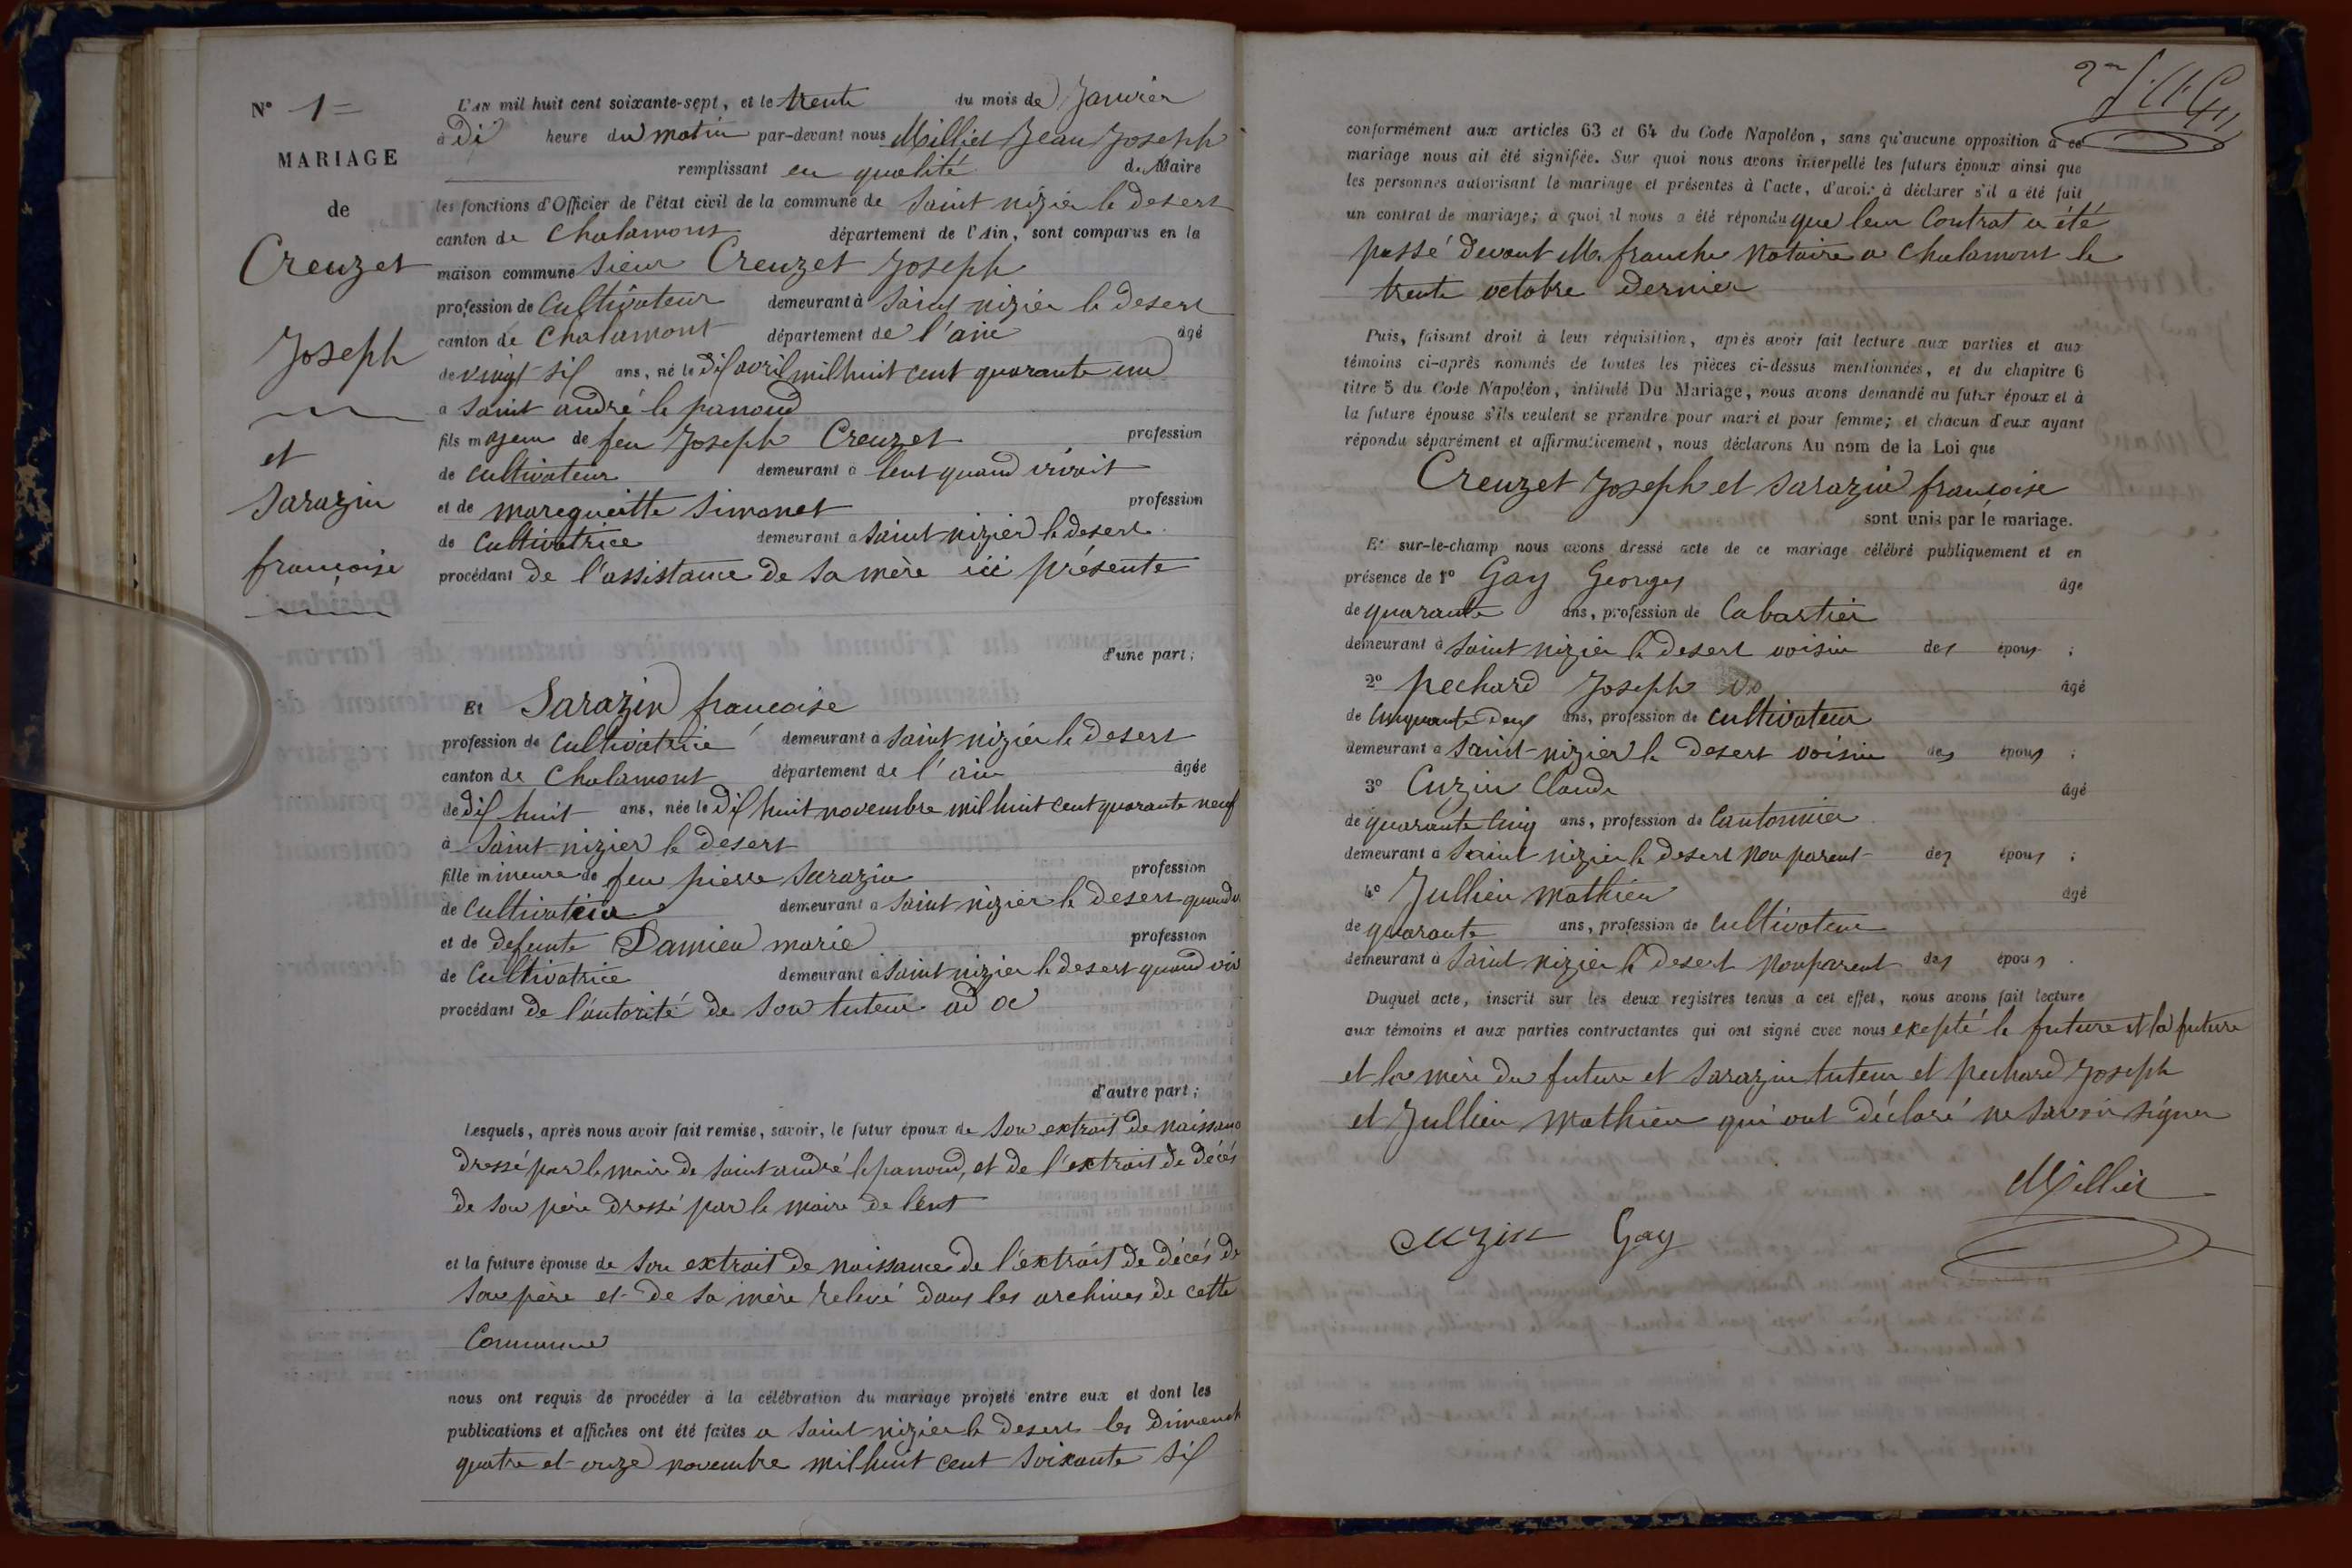 N° 1=
MARIAGE
de
Creuzet
Joseph
et
Sarazin
francoise
L'an mil huit cent soixante-sept, et le trente du mois de Janvier
à Di heure du matin par-devant nous Milliet Jean Joseph
remplissant en qualité de Maire
les fonctions d'Officier de l'état civil de la commune de Saint nizier le desert
canton de Chalamont département de l'Ain, sont comparus en la
maison commune Sieur Creuzet Joseph
profession de Cultivateur demeurant à Saint nizier le desert
canton de Chalamont département de l'ain âgé
de vingt six ans, né le Dix avril mil huit cent quarante un
à Saint andré le panoud
fils majeur de feu Joseph Creuzet profession
de cultivateur demeurant à lent quand vivait
et de maregueitte Simonet profession
de Cultivatrice demeurant à Saint nizier le desert
procédant de l'assistance de Sa mère ici présente
d'une part;
Et Sarazin francoise
profession de Cultivatrice demeurant à Saint nizier le desert
canton de Chalamont département de l'ain âgée
de Dix huit ans, née le Dix huit novembre mil huit cent quarante neuf
à Saint nizier le desert
fille mineure de feu pierre Sarazin profession
de Cultivateur demeurant à Saint nizier le desert quand v
et de defunte Damien marie profession
de Cultivatrice demeurant à Saint nizier le desert quand viv
procédant de l'autorité de Son tuteur ad oc
d'autre part;
Lesquels, après nous avoir fait remise, savoir, le futur époux de Son extrait de naissanc
dressé par le maire de Saint andré le panoud, et de l'extrait de décés
de Son père dressé par le maire de lent
et la future épouse de Son extrait de naissance de l'extrait de décés de
Son père et de Sa mère relevé dans les archives de cette
Commune
nous ont requis de procéder à la célébration du mariage projeté entre eux et dont les
publications et affiches ont été faites a Saint nizier le desert les Dimench
quatre et onze novembre mil huit cent Soixante Six
conformément aux articles 63 et 64 du Code Napoléon, sans qu'aucune opposition à ce
mariage nous ait été signifiée. Sur quoi nous avons interpellé les futurs époux ainsi que
les personnes autorisant le mariage et présentes à l'acte, d'avoir à déclarer s'il a été fait
un contrat de mariage; à quoi il nous a été répondu que leur Contrat a été
passé devant Me franche Notaire a Chalamont le
trente octobre Dernier
Puis, faisant droit à leur réquisition, après avoir fait lecture aux parties et aux
témoins ci-après nommés de toutes les pièces ci-dessus mentionnées, et du chapitre 6
titre 5 du Code Napoléon, intitulé Du Mariage, nous avons demandé au futur époux et à
la future épouse s'ils veulent se prendre pour mari et pour femme; et chacun d'eux ayant
répondu séparément et affirmativement, nous déclarons Au nom de la Loi que
Creuzet Joseph et Sarazin francoise
sont unis par le mariage.
Et sur-le-champ nous avons dressé acte de ce mariage célébré publiquement et en
présence de 1° Gay Georges âgé
de quarante ans, profession de Cabartier
demeurant à Saint nizier le desert voisin des époux ;
2° pechard Joseph âgé
de Cinquante deux ans, profession de cultivateur
demeurant à Saint-nizier le desert voisin des époux ;
3° Cuzin Claude âgé
de quarante Cinq ans, profession de Cantonnier
demeurant à Saint nizier le desert Non parent des époux ;
4° Jullien mathieu âgé
de quarante ans, profession de cultivateur
demeurant à Saint nizier le desert Non parent des époux .
Duquel acte, inscrit sur les deux registres tenus à cet effet, nous avons fait lecture
aux témoins et aux parties contractantes qui ont signé avec nous exepté le future et la future
et la mère du future et Sarazin tuteur et pechard Joseph
et Jullien Mathieu qui ont déclaré ne Savoir Signer
Milliet
cuzin Gay